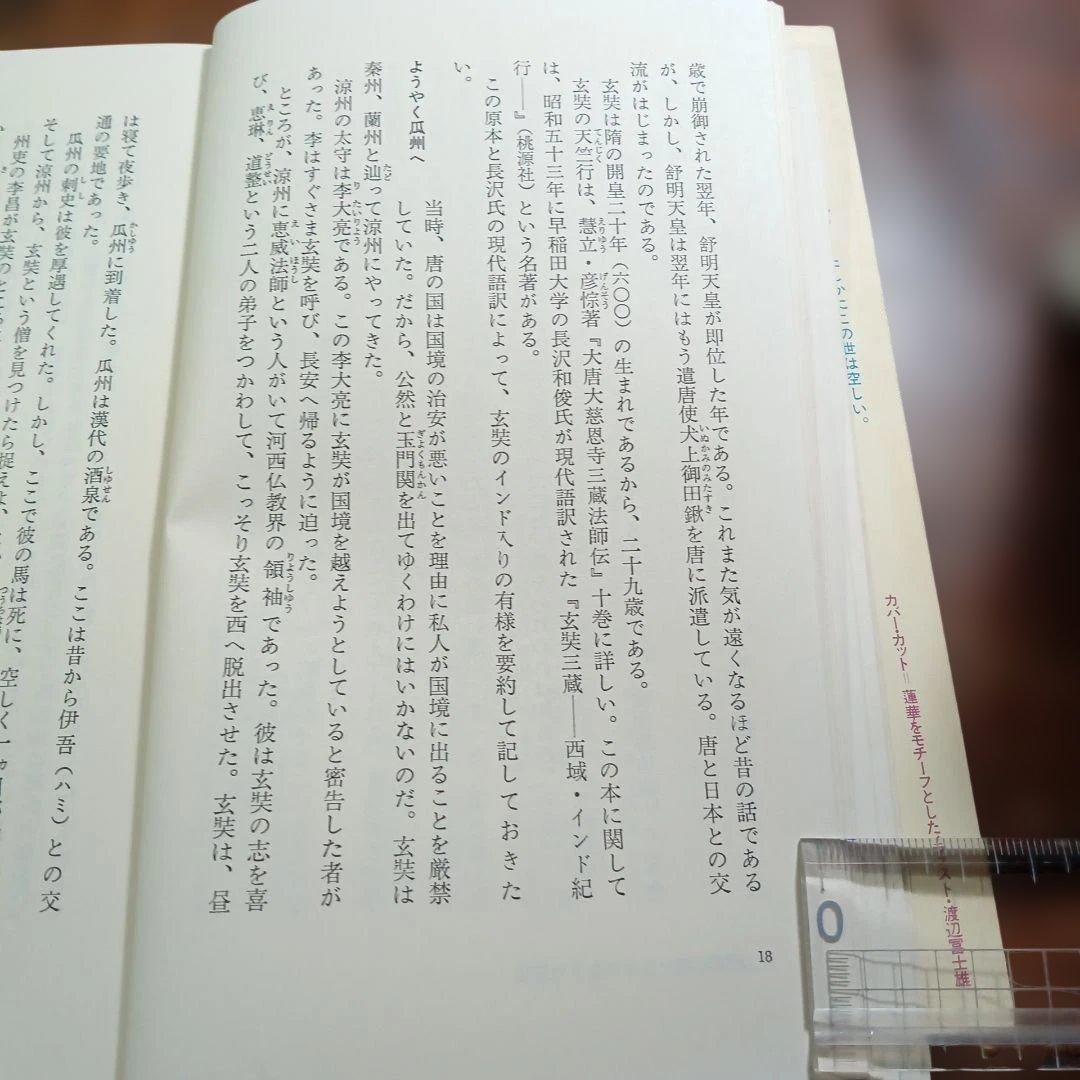 歳で崩御された翌年、舒明天皇が即位した年である。これまた気が遠くなるほど昔の話である
が、しかし、舒明天皇は翌年にはもう遣唐使犬上御田鍬を唐に派遣している。唐と日本との交
いぬかみのみたすき
流がはじまったのである。
玄奘は隋の開皇二十年（六〇〇）の生まれであるから、二十九歳である。
玄奘の天竺行は、慧立・彦悰著『大唐大慈恩寺三蔵法師伝』十巻に詳しい。この本に関して
てんじく
えりゆう
げんそう
は、昭和五十三年に早稲田大学の長沢和俊氏が現代語訳された『玄奘三蔵――西域・インド紀
行――』（桃源社）という名著がある。
この原本と長沢氏の現代語訳によって、玄奘のインド入りの有様を要約して記しておきた
い。
ようやく瓜州へ
当時、唐の国は国境の治安が悪いことを理由に私人が国境に出ることを厳禁
していた。だから、公然と玉門関を出てゆくわけにはいかないのだ。玄奘は
ぎよくもんかん
秦州、蘭州と辿って涼州にやってきた。
たど
涼州の太守は李大亮である。この李大亮に玄奘が国境を越えようとしていると密告した者が
り
たいりよう
あった。李はすぐさま玄奘を呼び、長安へ帰るように迫った。
ところが、涼州に恵威法師という人がいて河西仏教界の領袖であった。彼は玄奘の志を喜
え
い
ほうし
りようしゆう
び、恵琳、道整という二人の弟子をつかわして、こっそり玄奘を西へ脱出させた。玄奘は、昼
え
りん
どうせい
18
は寝て夜歩き、瓜州に到着した。瓜州は漢代の酒泉である。ここは昔から伊吾（ハミ）との交
かしゆう
しゆせん
通の要地であった。
瓜州の刺史は彼を厚遇してくれた。しかし、ここで彼の馬は死に、空しく一ヵ月
しし
そして涼州から、玄奘という僧を見つけたら捉えよ、
州吏の李昌が玄奘のところ
この世は空しい。
カバー・カット＝蓮華をモチーフとした
スト・渡辺冨士雄
0